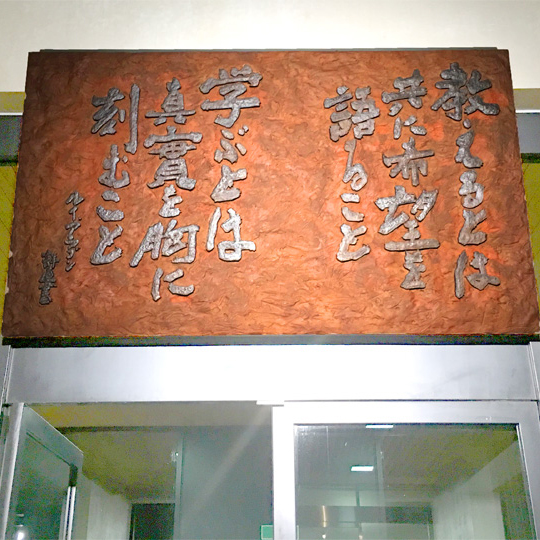 教えるとは
共に希望を
語ること
学ぶとは
真實を胸に
刻むこと
ルイ・アラゴン